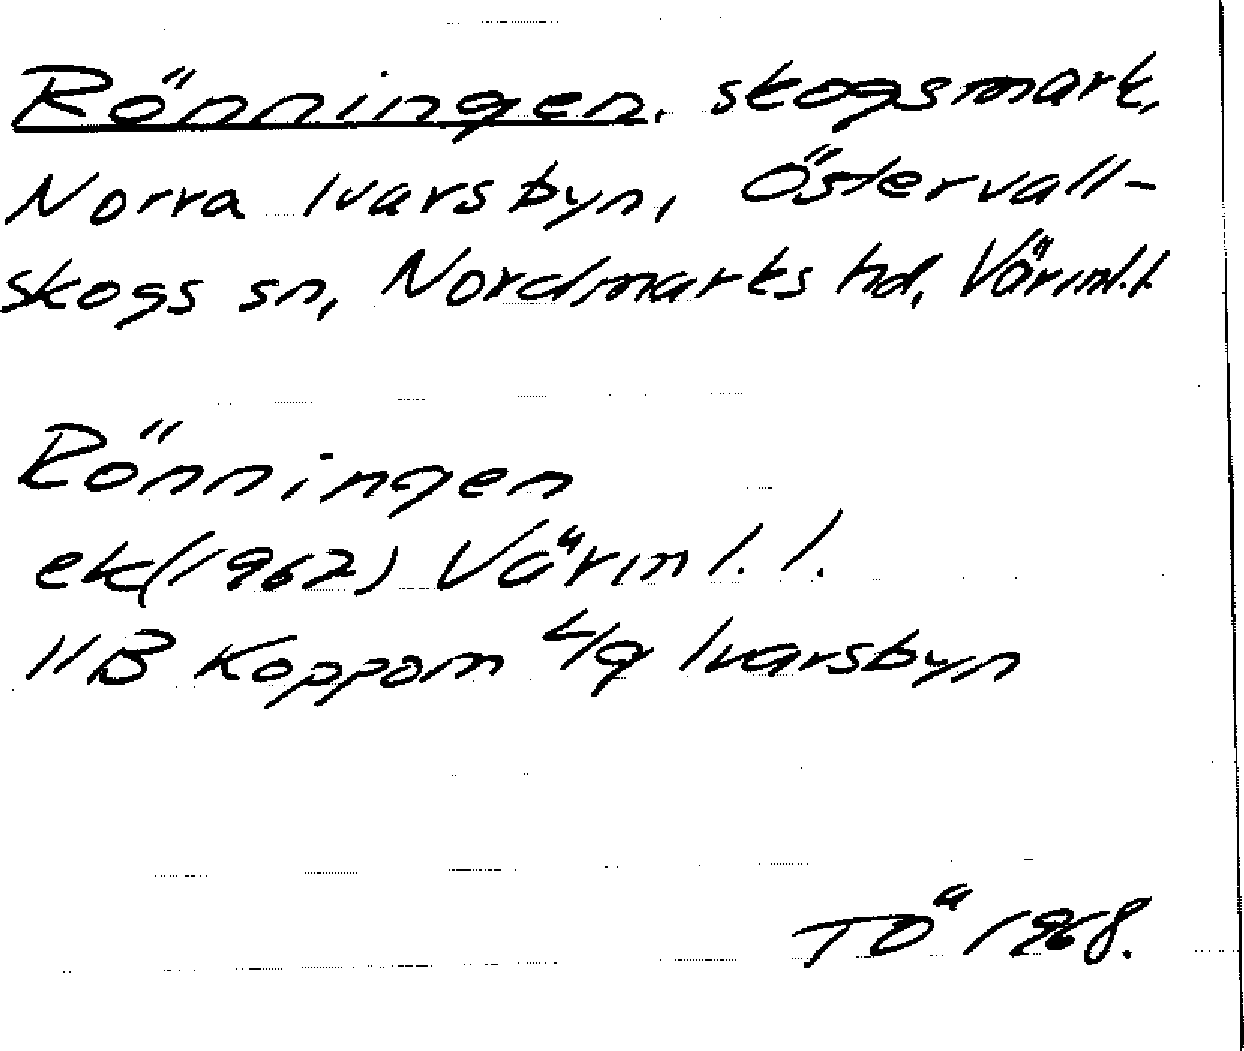 Rönningen, skogsmark,
Norra Ivarsbyn, Östervall-
skogs sn, Nordmarks hd, Värml.l.
Rönningen
ek(1962) Värml. l.
11B Koppom 4/g Ivarsbyn
TÖ 1968.